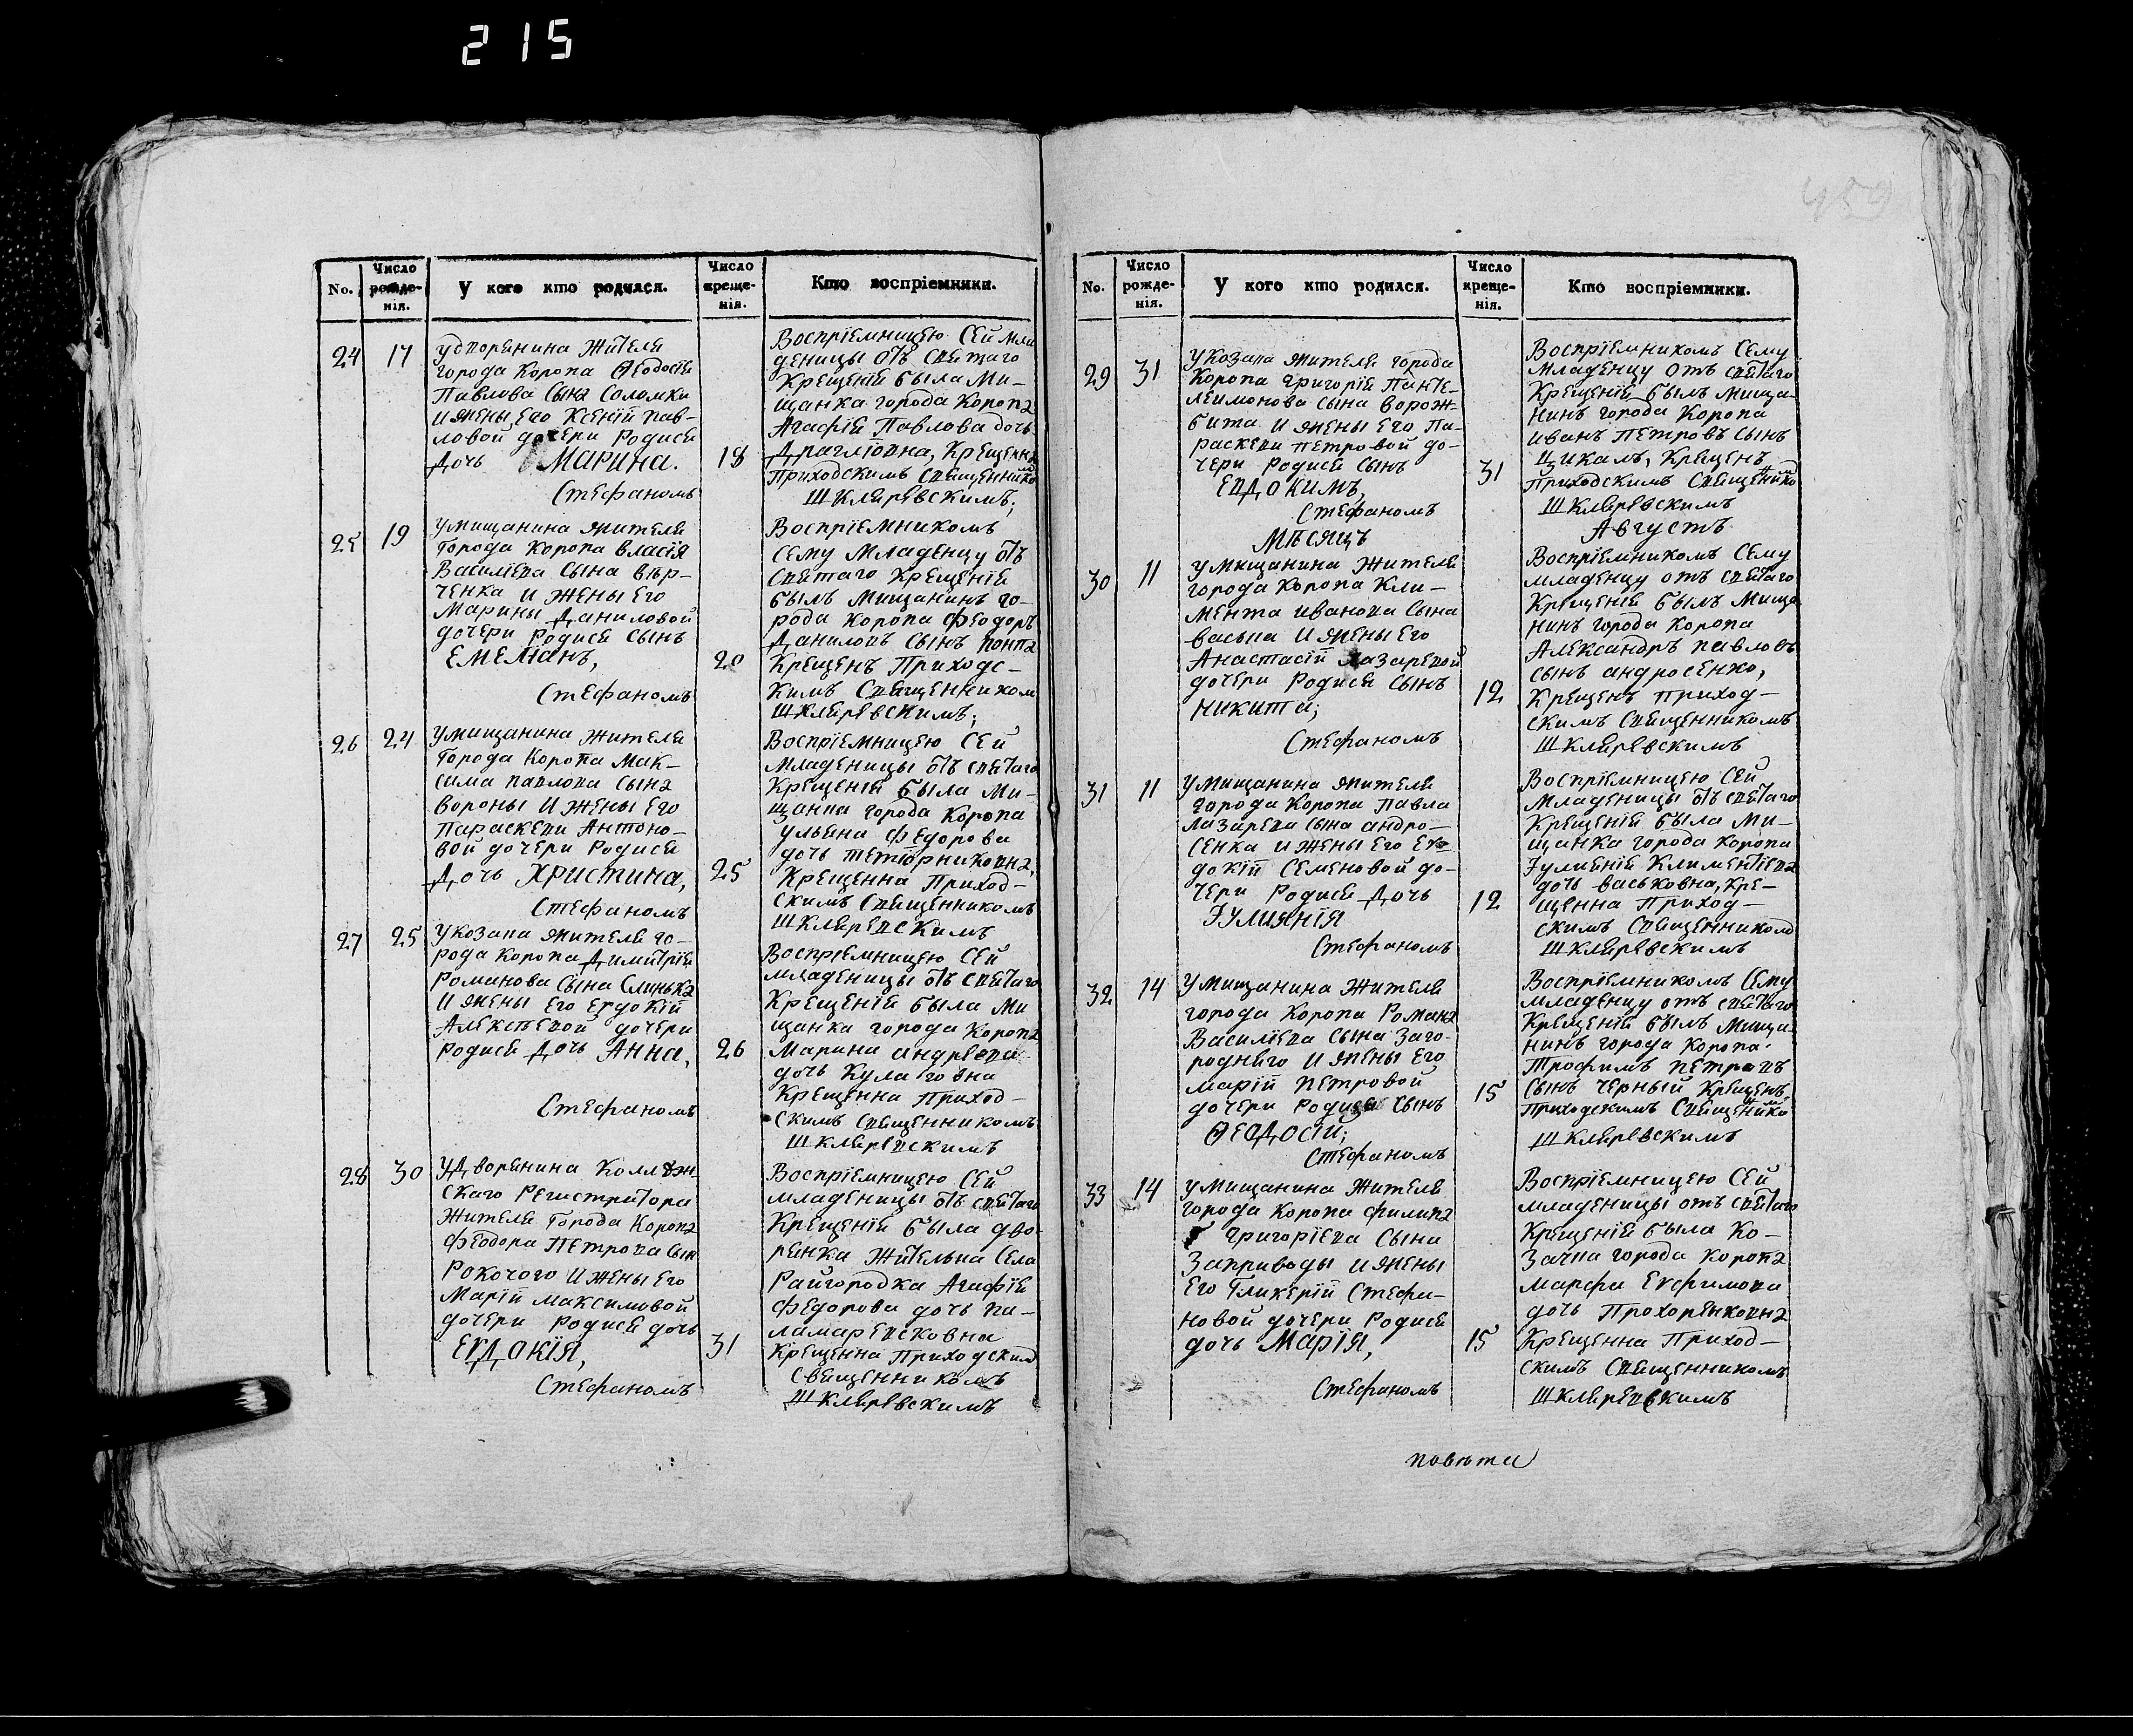 215
459
No.
Число рожде-нія.
У кого кто родился.
Число креще-нія.
Кто воспріемники.
24
17
удворянина жителя
города Коропа Ѳеодосія
Павлова Сына Соломки
и жены Его Ксеніи пав-
ловой дочери Родися
Дочь Марина.
Стефаномъ
18
Воспріемницею Сей мла
деницы отъ святаго
Крещенія была Ми-
щанка города Коропа
Агафія Павлова дочь
Крещенна
Приходскимъ Священникомъ
Шкляревскимъ;
25
19
умищанина жителя
Города Коропа Власія
Василіева Сына Вѣр-
ченка и жены Его
Марины Даниловой
дочери Родися Сынъ
Емеліанъ,
Стефаномъ
20
Воспріемникомъ
сему младенцу отъ
Святаго Крещенія
былъ Мищанинъ го-
рода Коропа Феодоръ
Даниловъ Сынъ
Крещенъ Приходс-
кимъ Священником
Шкляревскимъ;
26
24
умищанина жителя
Города Коропа Мак-
сима павлова Сына
Вороны и жены Его
Параскеви Антоно-
вой дочери Родися
Дочь Христина,
Стефаномъ
25
Воспріемницею Сей
младеницы отъ святаго
Крещенія была Ми-
щанка города Коропа
Ульяна Федорова
дочь
Крещенна Приход-
скимъ Священникомъ
Шкляревскимъ
27
25
Укозака жителя го-
рода Коропа Димитрія
Романова Сына Слинька
и жены его Евдокіи
Алексѣевой дочери
Родися Дочь Анна,
Стефаномъ
26
Воспріемницею Сей
младеницы отъ святаго
Крещенія была Ми
щанка города Коропа
Марина андреева
дочь Кулаговна
Крещенна Приход-
скимъ Священникомъ
Шкляревскимъ
28
30
У Дворянина Коллеж-
скаго Регистратора
жителя Города Коропа
Феодора Петрова Сын
Рокочого и жены его
Маріи Максимовой
дочери Родися дочь
Евдокія,
Стефаномъ
31
Воспріемницею Сей
младеницы отъ святаго
Крещенія была дво-
рянка жительна Села
Райгородка Агафія
Федорова дочь па-
ламаревсковна
Крещенна Приходским
Священникомъ
Шкляревскимъ
No.
Число рожде-нія.
У кого кто родился.
Число креще-нія.
Кто воспріемники.
29
31
Укозака жителя города
Коропа Григорія Панте-
леимонова сына Ворож-
бита и жены Его Па-
раскеви Петровой до-
чери Родися Сынъ
Евдокимъ,
Стефаномъ
31
Воспріемникомъ Сему
Младенцу отъ святаго
Крещенія былъ Мища-
нинъ города Коропа
иванъ Петровъ Сынъ
Цикалъ, Крещенъ
Приходскимъ Священникомъ
Шкляревскимъ
Мѣсяцъ Августъ
30
11
умищанина жителя
города Коропа Кли-
мента иванова Сына
васька и жены Его
Анастасіи Лазаревой
дочери Родися Сынъ
Никита;
Стефаномъ
12
Воспріемникомъ Сему
младенцу отъ святаго
Крещенія былъ Мища
нинъ города Коропа
Александръ павловъ
сынъ андросенко,
Крещенъ приход-
скимъ Священникомъ
Шкляревскимъ
31
11
умищанина жителя
города Коропа Павла
Лазарева сына андро-
сенка и жены Его Ев-
докіи Семеновой до-
чери Родися Дочь
Іулианія
Стефаномъ
12
Воспріемницею Сей
Младеницы отъ святаго
Крещенія была Ми-
щанка города Коропа
Іулианія Климентіева
дочь васьковна, кре-
щенна Приход-
скимъ Священникомъ
Шкляревскимъ
32
14
умищанина жителя
города Коропа Романа
Василіева Сына Заго-
роднего и жены Его
Маріи Петровой
дочери Родися Сынъ
Ѳеодосій;
Стефаномъ
15
Воспріемникомъ Сему
младенцу отъ святаго
Крещенія былъ Мища-
нинъ города Коропа
Трофимъ Петровъ
Сынъ черный Крещенъ,
Приходскимъ Священникомъ
Шкляревскимъ
33
14
умищанина жителя
города Коропа Филипа
Григоріева Сына
Заприводы и жены
Его Гликеріи Стефа-
новой дочери Родися
дочь Марія,
Стефаномъ
15
Воспріемницею Сей
младеницы отъ святаго
Крещенія была Ко-
зачка города Коропа
марфа Евфимова
дочь Прохоренковна
Крещенна Приход-
скимъ Священникомъ
Шкляревскимъ
повѣта